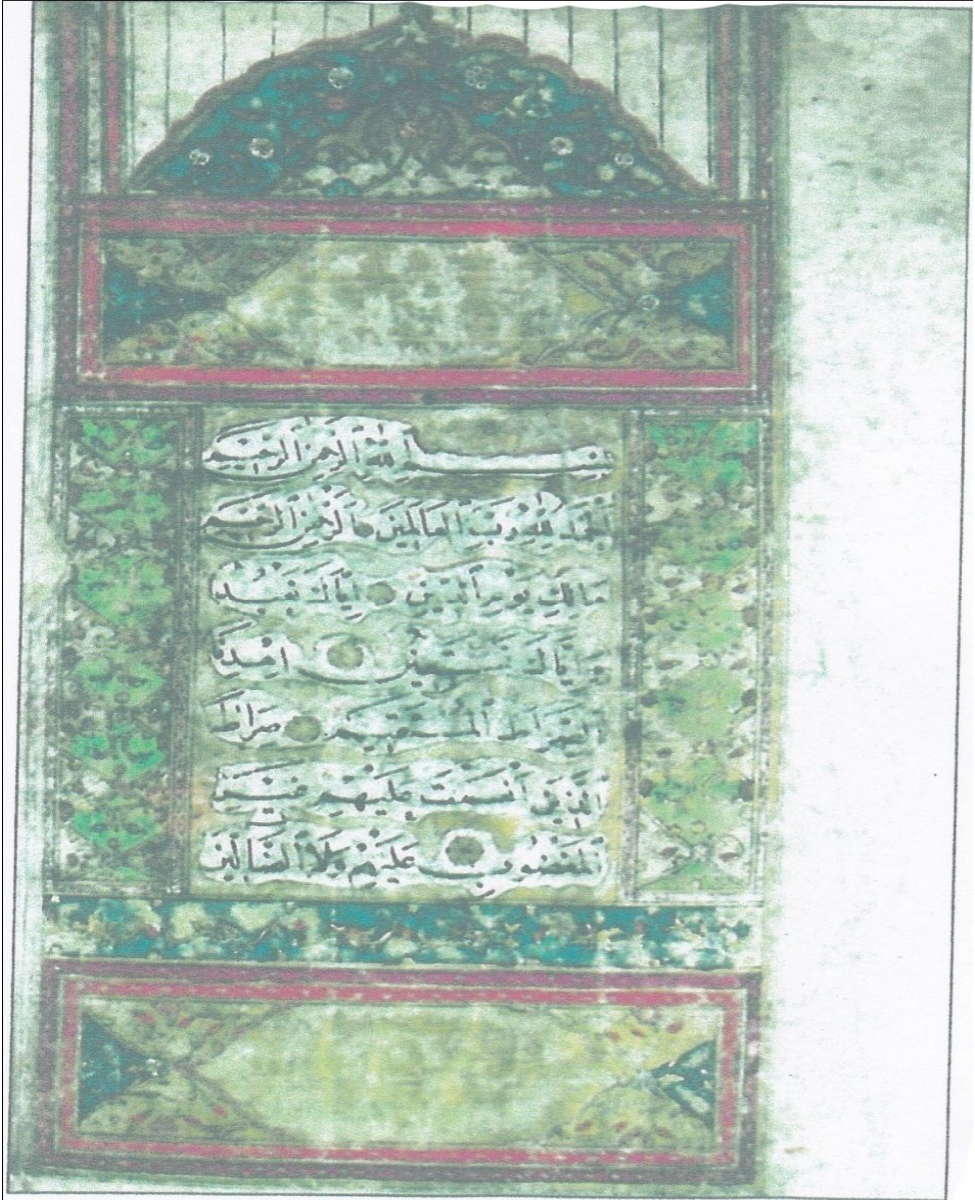 بسم الله الرحمن الرحيم
الحمد لله رب العالمين الرحمن الرحيم
مالك يوم الدين اياك نعبد
واياك نستعين اهدنا
الصراط المستقيم صراط
الذين انعمت عليهم غير
المغضوب عليهم ولا الضالين